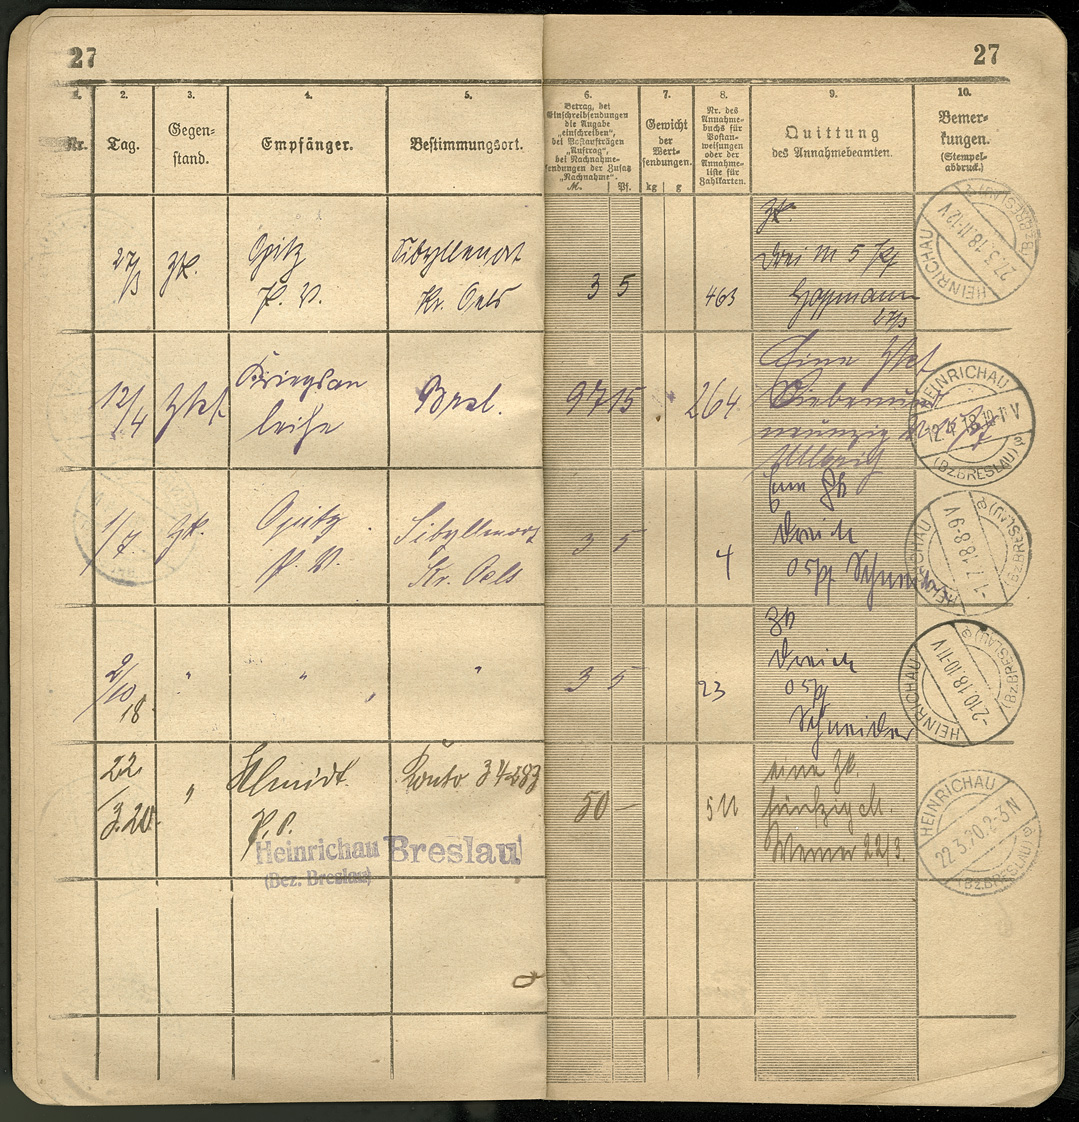 27
27
1.
2.
3.
4.
5.
6.
7.
8.
9.
10.
Nr.
Tag.
Gegen-
stand.
Empfänger.
Bestimmungsort.
Betrag, bei
Einschreibsendungen
die Angabe
„einschreiben“,
bei Postaufträgen
„Auftrag“,
bei Nachnahme-
sendungen der Zusatz
„Nachnahme“.
M.
Pf.
Gewicht
der
Wert-
sendungen.
kg
g
Nr. des
Annahme-
buchs für
Postan-
weisungen
oder der
Annahme-
liste für
Zahlkarten.
Quittung
des Annahmebeamten.
Bemer-
kungen.
(Stempel-
abdruck.)
27/3
Zk.
Opitz
P. V.
Sibyllenort
Kr. Oels
3 5
463
Zk.
drei M 5 Pf
Hoffmann
27/3
HEINRICHAU
27.3.18.11-12V
(Bz. BRESLAU)
12/4
Kriegsan
leihe
Bresl.
97 15
264
Eine
Siebenund
neunzig
HEINRICHAU
(Bz. BRESLAU)
1/7.
Zk.
Opitz
P. V.
Sibyllenort
Kr. Oels
3 5
4
Eine Zk
05 Pf
HEINRICHAU
-1.7.18.8-9V
(Bz. BRESLAU)
2/10
18.
"
"
"
3 5
23
Zk
05 Pf
Schneider
HEINRICHAU
-2.10.18.10-11V
(Bz. BRESLAU)
22
3.20.
"
P. V.
Heinrichau
(Bez. Breslau)
Konto 34283
Breslau
50 —
511
eine Zk.
fünfzig M.
Werner 22/3.
HEINRICHAU
22.3.20.2-3N
(Bz. BRESLAU)